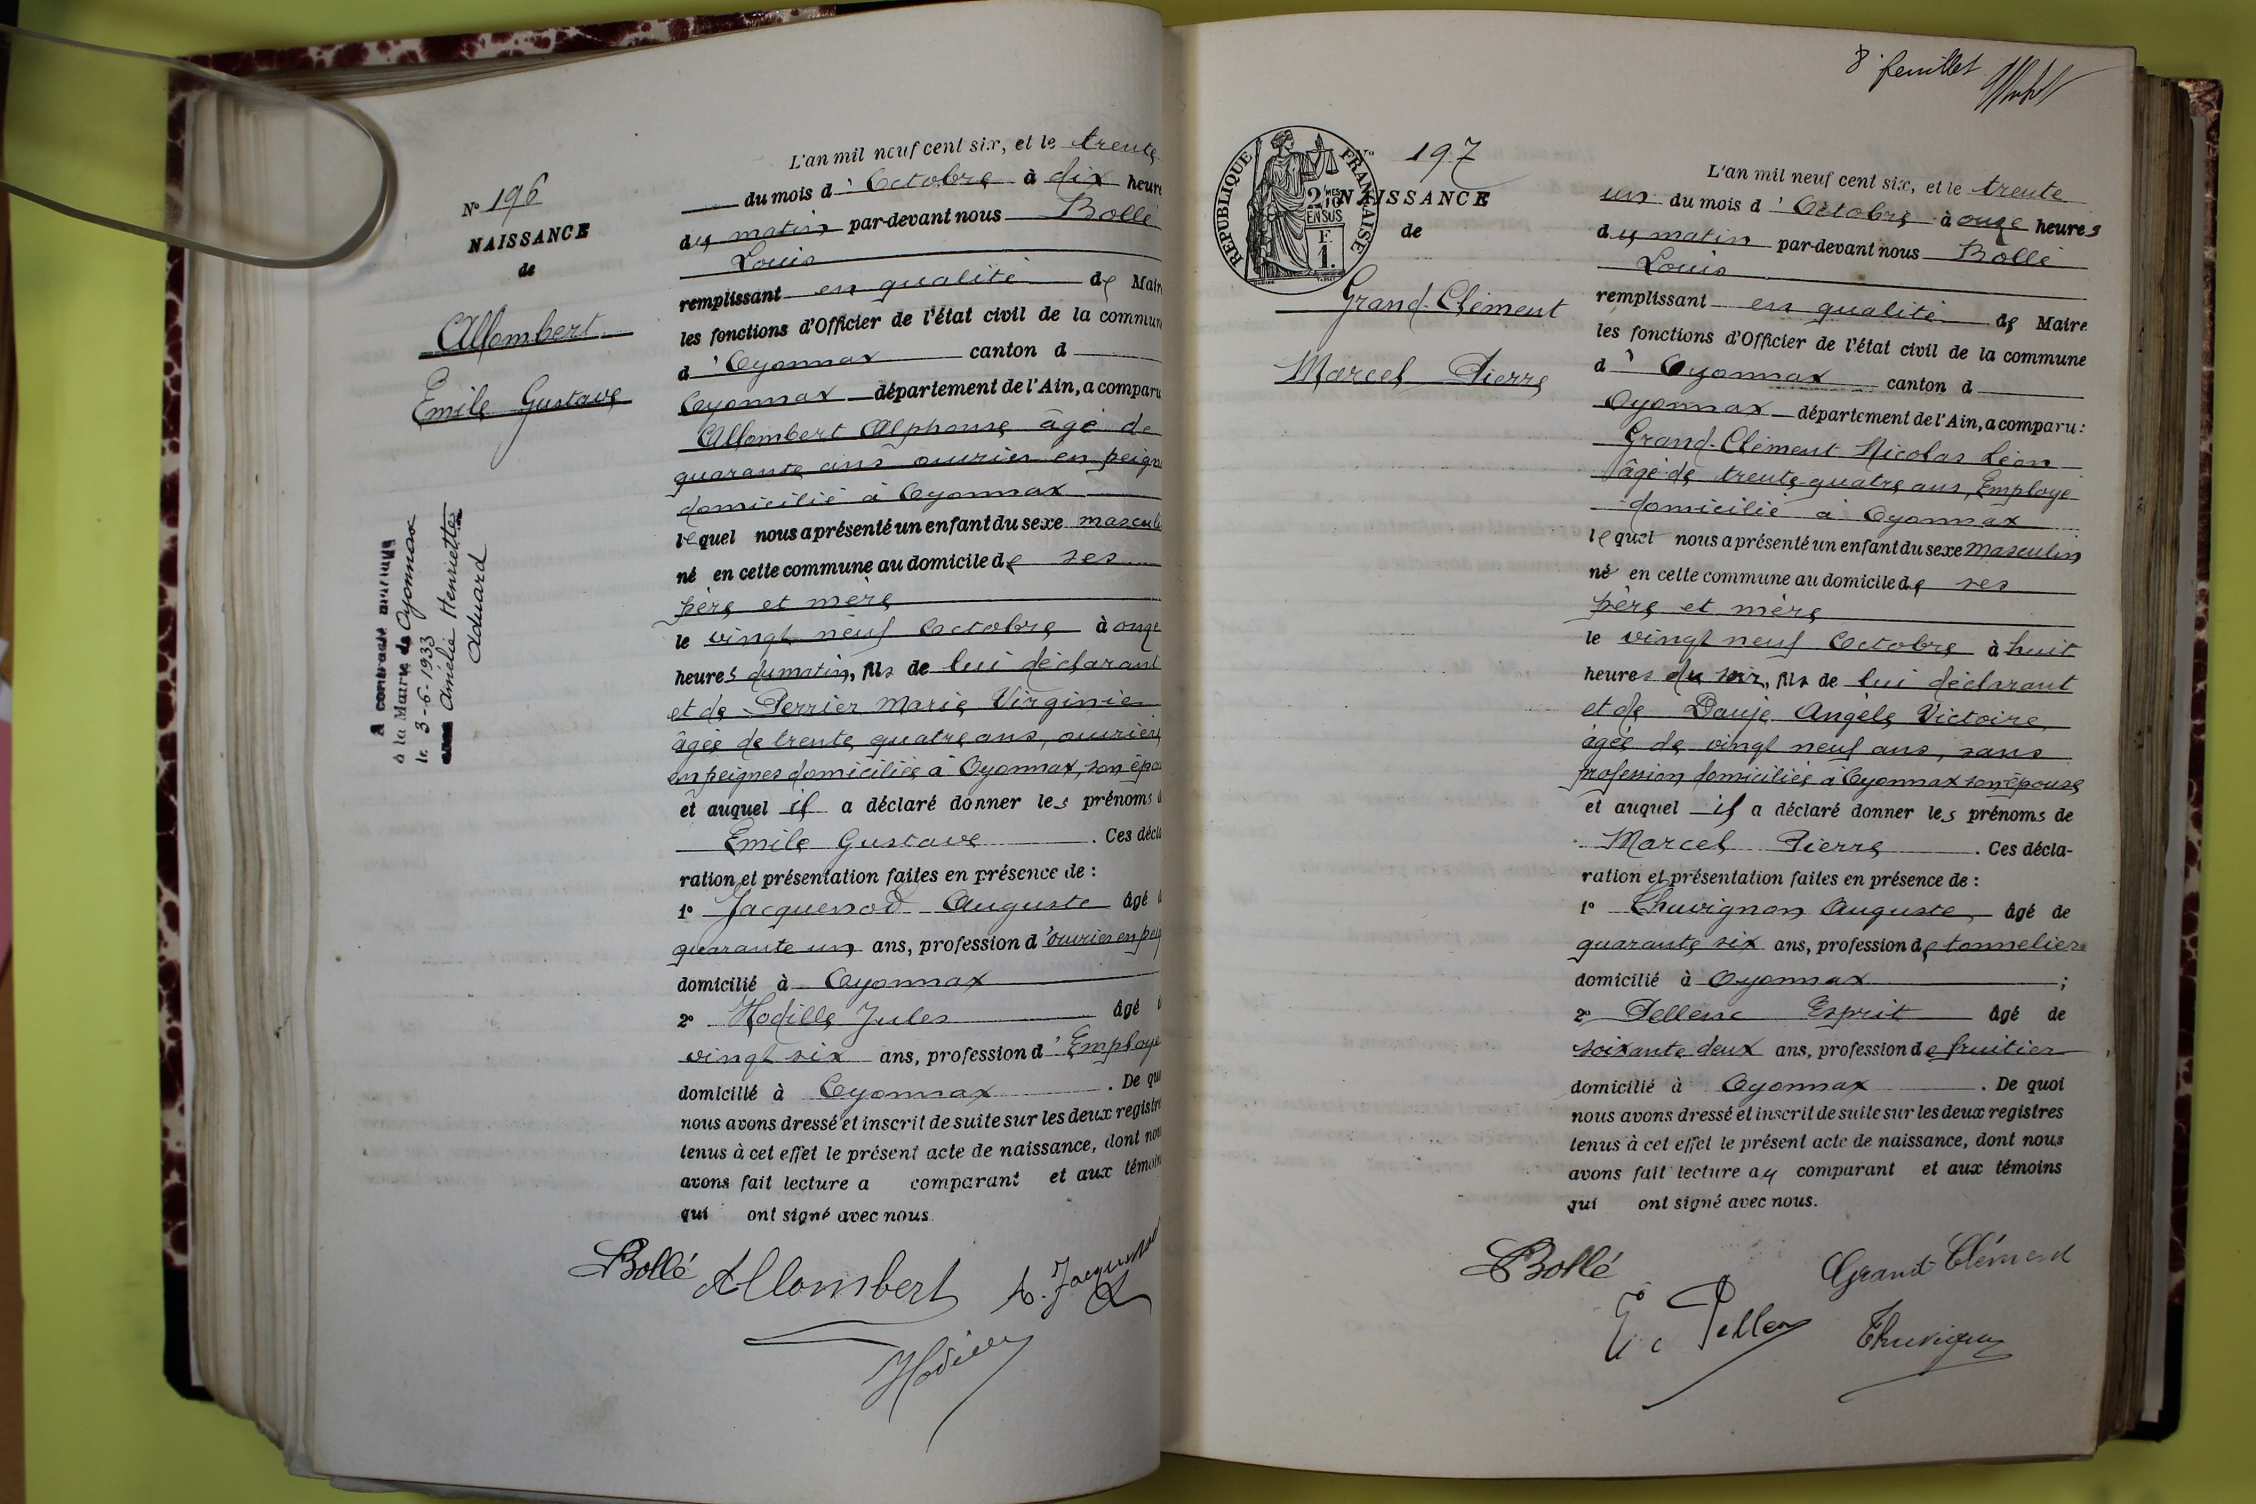 N° 196
NAISSANCE
de
Allombert
Emile Gustave
A contracté mariage
à la Mairie de Oyonnax
le 3-6-1933
avec Amélie Henriette
Aduard
L'an mil neuf cent six, et le trente
du mois d'Octobre à dix heure
du matin par-devant nous Bollé
Louis
remplissant en qualité de Mair
les fonctions d'Officier de l'état civil de la commun
d'Oyonnax canton d
Oyonnax département de l'Ain, a comparu
Allombert Alphonse âgé de
quarante ans ouvrier en peign
domicilié à Oyonnax
lequel nous a présenté un enfant du sexe mascul
né en cette commune au domicile de ses
père et mère
le vingt neuf Octobre à onze
heures du matin, fils de lui déclarant
et de Perrier Marie Virginie
âgée de trente quatre ans, ouvrière
en peignes domiciliée à Oyonnax, son épou
et auquel il a déclaré donner les prénoms d
Emile Gustave. Ces décla
ration et présentation faites en présence de :
1° Jacquenod Auguste âgé d
quarante un ans, profession d'ouvrier en peig
domicilié à Oyonnax
2° Hodille Jules âgé d
vingt six ans, profession d'Employé
domicilié à Oyonnax. De quo
nous avons dressé et inscrit de suite sur les deux registre
tenus à cet effet le présent acte de naissance, dont nou
avons fait lecture a comparant et aux témoin
qui ont signé avec nous.
Bollé Allombert A. Jacquenod
8e feuillet
RÉPUBLIQUE FRANÇAISE
2/10 MES
EN SUS
F.
1.
N° 197
NAISSANCE
de
Grand-Clément
Marcel Pierre
L'an mil neuf cent six, et le trente
un du mois d'Octobre à onze heures
du matin par-devant nous Bollé
Louis
remplissant en qualité de Maire
les fonctions d'Officier de l'état civil de la commune
d'Oyonnax canton d
Oyonnax département de l'Ain, a comparu :
Grand-Clément Nicolas Léon
âgé de trente-quatre ans, Employé
domicilié à Oyonnax
lequel nous a présenté un enfant du sexe masculin
né en cette commune au domicile de ses
père et mère
le vingt neuf Octobre à huit
heures du soir, fils de lui déclarant
et de Angèle Victoire
âgée de vingt neuf ans, sans
profession, domiciliée à Oyonnax son épouse
et auquel il a déclaré donner les prénoms de
Marcel Pierre. Ces décla-
ration et présentation faites en présence de :
1° Thuvignon Auguste, âgé de
quarante six ans, profession de tonnelier
domicilié à Oyonnax ;
2° Pellenc Esprit âgé de
soixante deux ans, profession de fruitier
domicilié à Oyonnax. De quoi
nous avons dressé et inscrit de suite sur les deux registres
tenus à cet effet le présent acte de naissance, dont nous
avons fait lecture au comparant et aux témoins
qui ont signé avec nous.
Bollé Grand-Clément